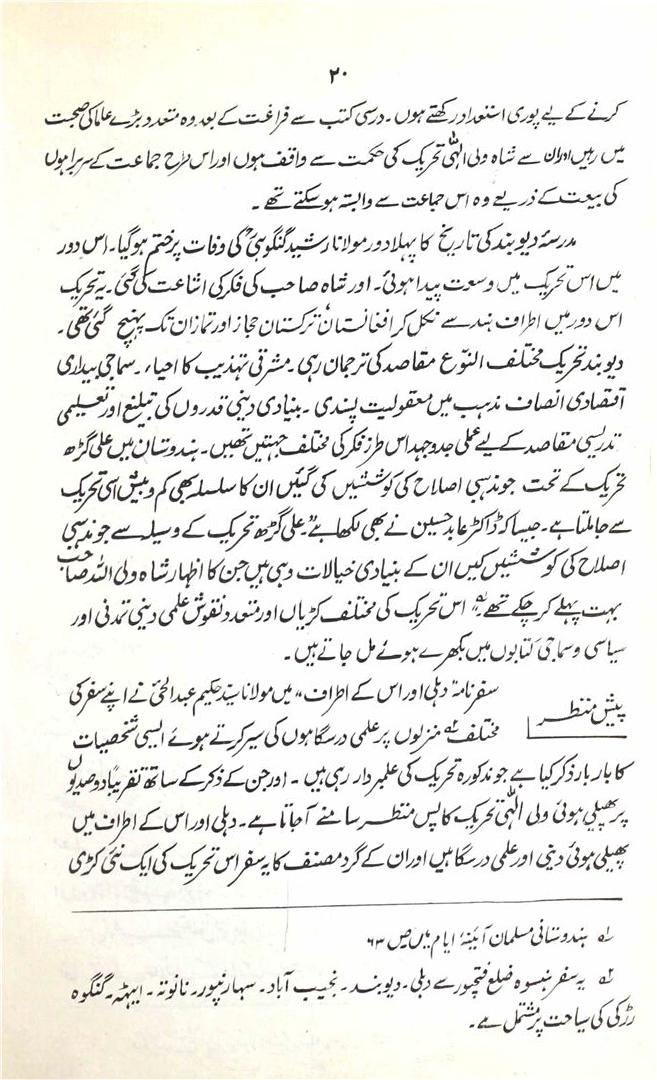 ۲۰
کرنے کے لیے پوری استعداد رکھتے ہوں۔ درسی کتب سے فراغت کے بعد وہ متعدد بڑے علما کی صحبت
میں رہیں اور ان سے شاہ ولی اللّٰہی تحریک کی حکمت سے واقف ہوں اور اس طرح جماعت کے سربراہوں
کی بیعت کے ذریعے وہ اس جماعت سے وابستہ ہو سکتے تھے۔
مدرسۂ دیوبند کی تاریخ کا پہلا دور مولانا رشید گنگوہیؒ کی وفات پر ختم ہو گیا۔ اس دور
میں اس تحریک میں وسعت پیدا ہوئی۔ اور شاہ صاحب کی فکر کی اشاعت کی گئی۔ یہ تحریک
اس دور میں اطراف ہند سے نکل کر افغانستان، ترکستان حجاز اور تمازان تک پہنچ گئی تھی۔
دیوبند تحریک مختلف النوّع مقاصد کی ترجمان رہی۔ مشرقی تہذیب کا احیاء۔ سماجی بیداری
اقتصادی انصاف مذہب میں معقولیت پسندی۔ بنیادی دینی قدروں کی تبلیغ اور تعلیمی
تدریسی مقاصد کے لیے عملی جدوجہد اس طرز فکر کی مختلف جہتیں تھیں۔ ہندوستان میں علی گڑھ
تحریک کے تحت جو مذہبی اصلاح کی کوششیں کی گئیں ان کا سلسلہ بھی کم و بیش اسی تحریک
سے جا ملتا ہے۔ جیسا کہ ڈاکٹر عابد حسین نے بھی لکھا ہے "علی گڑھ تحریک کے وسیلہ سے جو مذہبی
اصلاح کی کوششیں کیں ان کے بنیادی خیالات وہی ہیں جن کا اظہار شاہ ولی اللہ صاحب
بہت پہلے کر چکے تھے"۱؎ اس تحریک کی مختلف کڑیاں اور متعدد نقوش علمی دینی تمدنی اور
سیاسی و سماجی کتابوں میں بکھرے ہوئے مل جاتے ہیں۔
پیش منظر
سفرنامہ "دہلی اور اس کے اطراف" میں مولانا سید حکیم عبدالحئی نے اپنے سفر کی
مختلف ۲؎ منزلوں پر علمی درسگاہوں کی سیر کرتے ہوئے ایسی شخصیات
کا بار بار ذکر کیا ہے جو مذکورہ تحریک کی علمبردار رہی ہیں۔ اور جن کے ذکر کے ساتھ تقریباً دو صدیوں
پر پھیلی ہوئی ولی اللّٰہی تحریک کا پس منظر سامنے آ جاتا ہے۔ دہلی اور اس کے اطراف میں
پھیلی ہوئی دینی اور علمی درسگاہیں اور ان کے گرد مصنف کا یہ سفر اس تحریک کی ایک نئی کڑی
۱؎ ہندوستانی مسلمان آئینۂ ایام میں ص ۶۳
۲؎ یہ سفر ہنسوہ ضلع فتحپور سے دہلی۔ دیوبند۔ نجیب آباد۔ سہارنپور۔ نانوتہ۔ ایبہٹہ۔ گنگوہ
رڑکی کی سیاحت پر مشتمل ہے۔